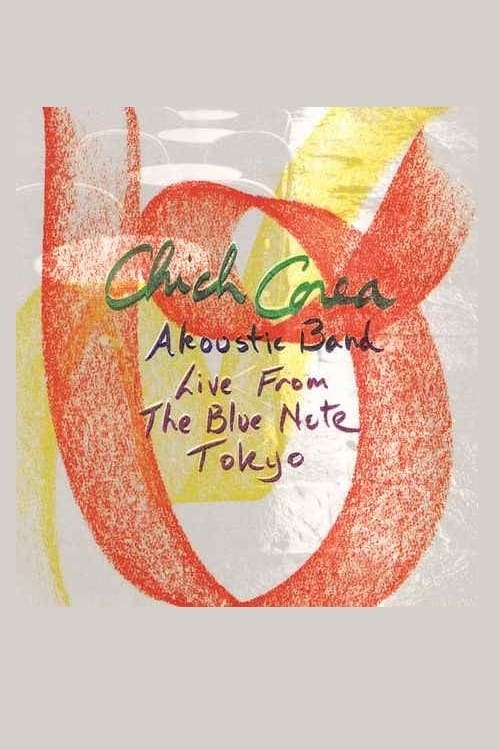 Chick Corea
Akoustic Band
Live From
The Blue Note
Tokyo